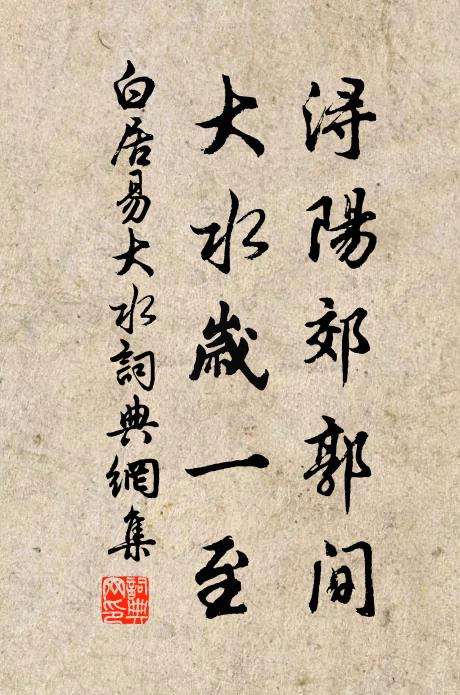 浔陽郊郭間
大水歲一至
白居易大水詞典網集
詞典網印